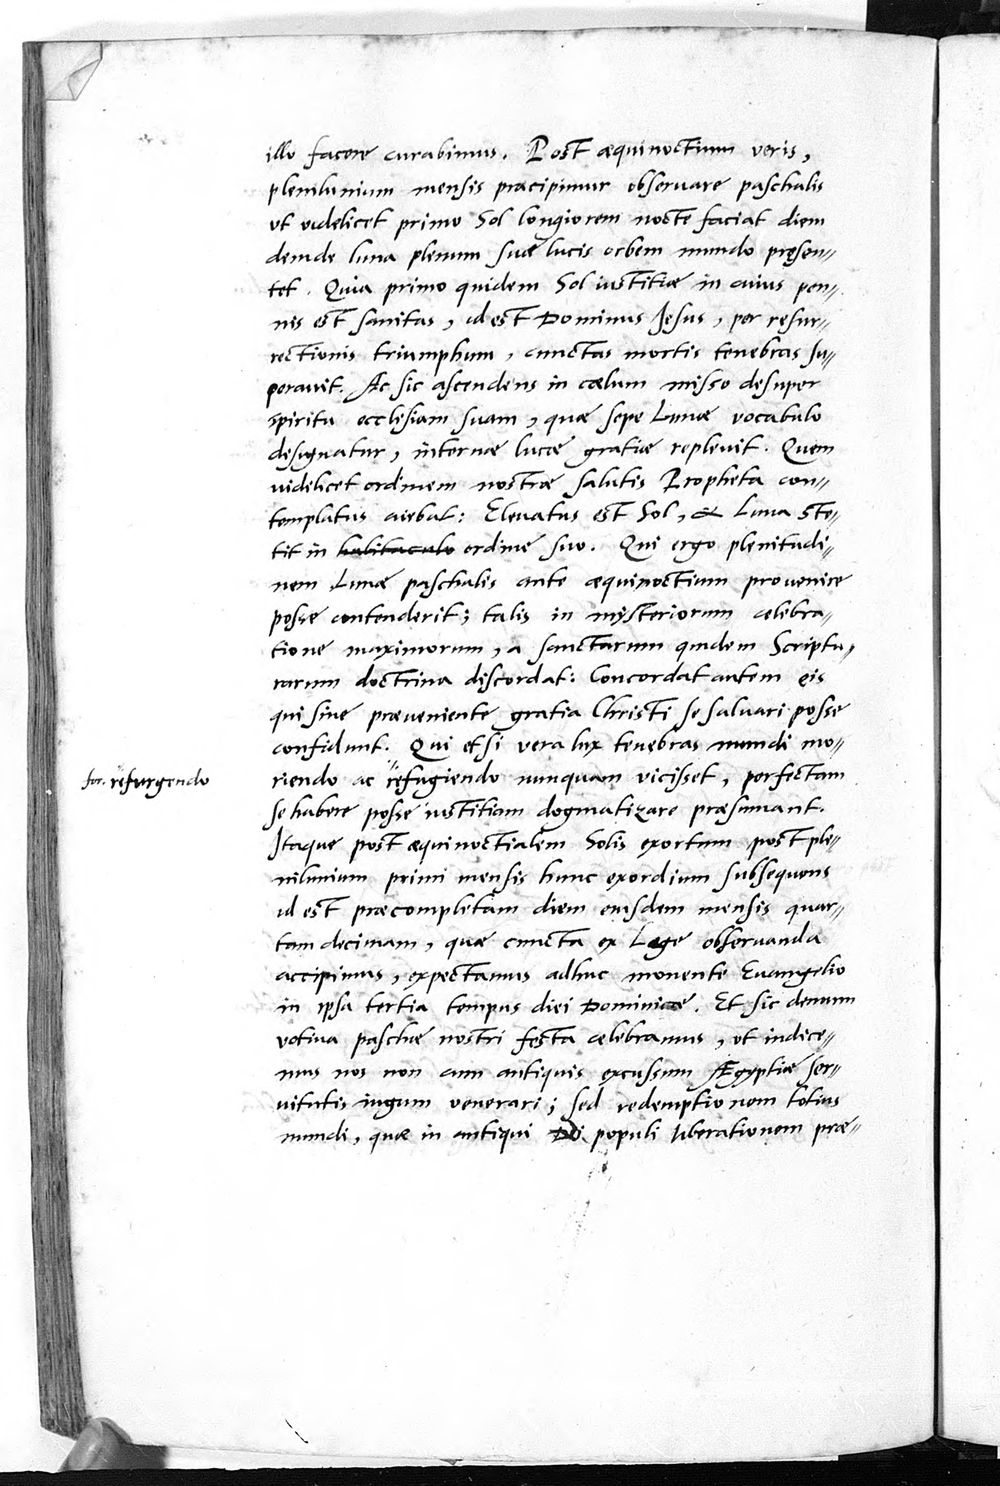 illo facere curabimus. Post æquinoctium veris,
plenilunium mensis præcipimur obseruare paschalis
vt videlicet primo Sol longiorem nocte faciat diem
deinde luna plenum suæ lucis orbem mundo pręsen„
tet. Quia primo quidem Sol iustitiæ in cuius pen„
nis est sanitas, id est Dominus Jesus, per resur„
rectionis triumphum, cunctas mortis tenebras su„
perauit. Ac sic ascendens in cælum misso desuper
spiritu ecclesiam suam, quæ sepe Lunæ vocabulo
designatur, internæ lucæ gratiæ repleuit. Quem
videlicet ordinem nostræ salutis Propheta con„
templatus aiebat: Eleuatus est Sol, & Luna ste„
tit in habitaculo ordine suo. Qui ergo plenitudi„
nem Lunæ paschalis ante æquinoctium prouenire
posse contenderit; talis in mysteriorum celebra„
tione maximorum, a sanctarum quidem Scriptu„
rarum doctrina discordat: Concordat autem eis
qui sine præueniente gratia Christi se saluari posse
confidunt. Qui et si vera lux tenebras mundi mo„
riendo ac "refugiendo nunquam vicisset, perfectam
for. "resurgendo
se habere posse iustitiam dogmatizare præsumant.
Itaque post æquinoctialem Solis exortum post ple„
nilunium primi mensis hunc exordium subsequens
id est præcompletam diem eiusdem mensis quar„
tam decimam, quæ cuncta ex Lege obseruanda
accipimus, expectamus adhuc monente Euangelio
in ipsa tertia tempus diei Dominicæ. Et sic demum
votiua paschæ nostri festa celebramus, vt indice„
mus nos non cum antiquis excussum Ægyptiæ ser„
uitutis iugum venerari; sed redemptionem totius
mundi, quæ in antiqui Dei populi liberationem præ„